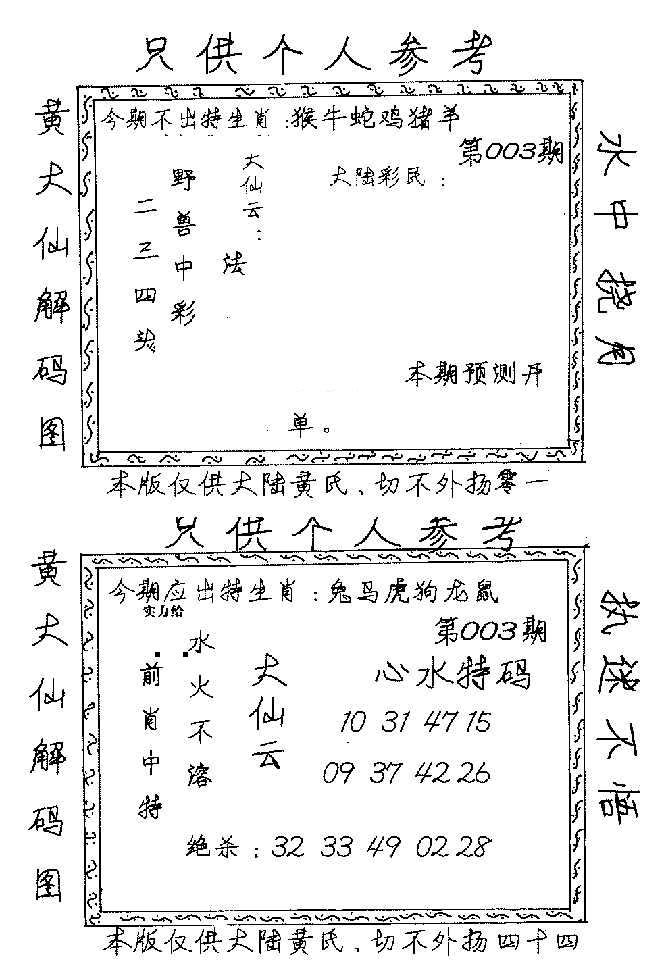 只供个人参考
黄大仙解码图
今期不出特生肖:猴牛蛇鸡猪羊
第003期
大陆彩民:
大仙云:
法
野兽中彩
二三四战
本期预测开
单。
水中挠月
本版仅供大陆黄氏、切不外扬零一
只供个人参考
黄大仙解码图
今期应出特生肖:兔马虎狗龙鼠
实力给
第003期
心水特码
大仙云
水火不溶
前肖中特
10 31 47 15
09 37 42 26
绝杀:32 33 49 02 28
执迷不悟
本版仅供大陆黄氏、切不外扬四十四